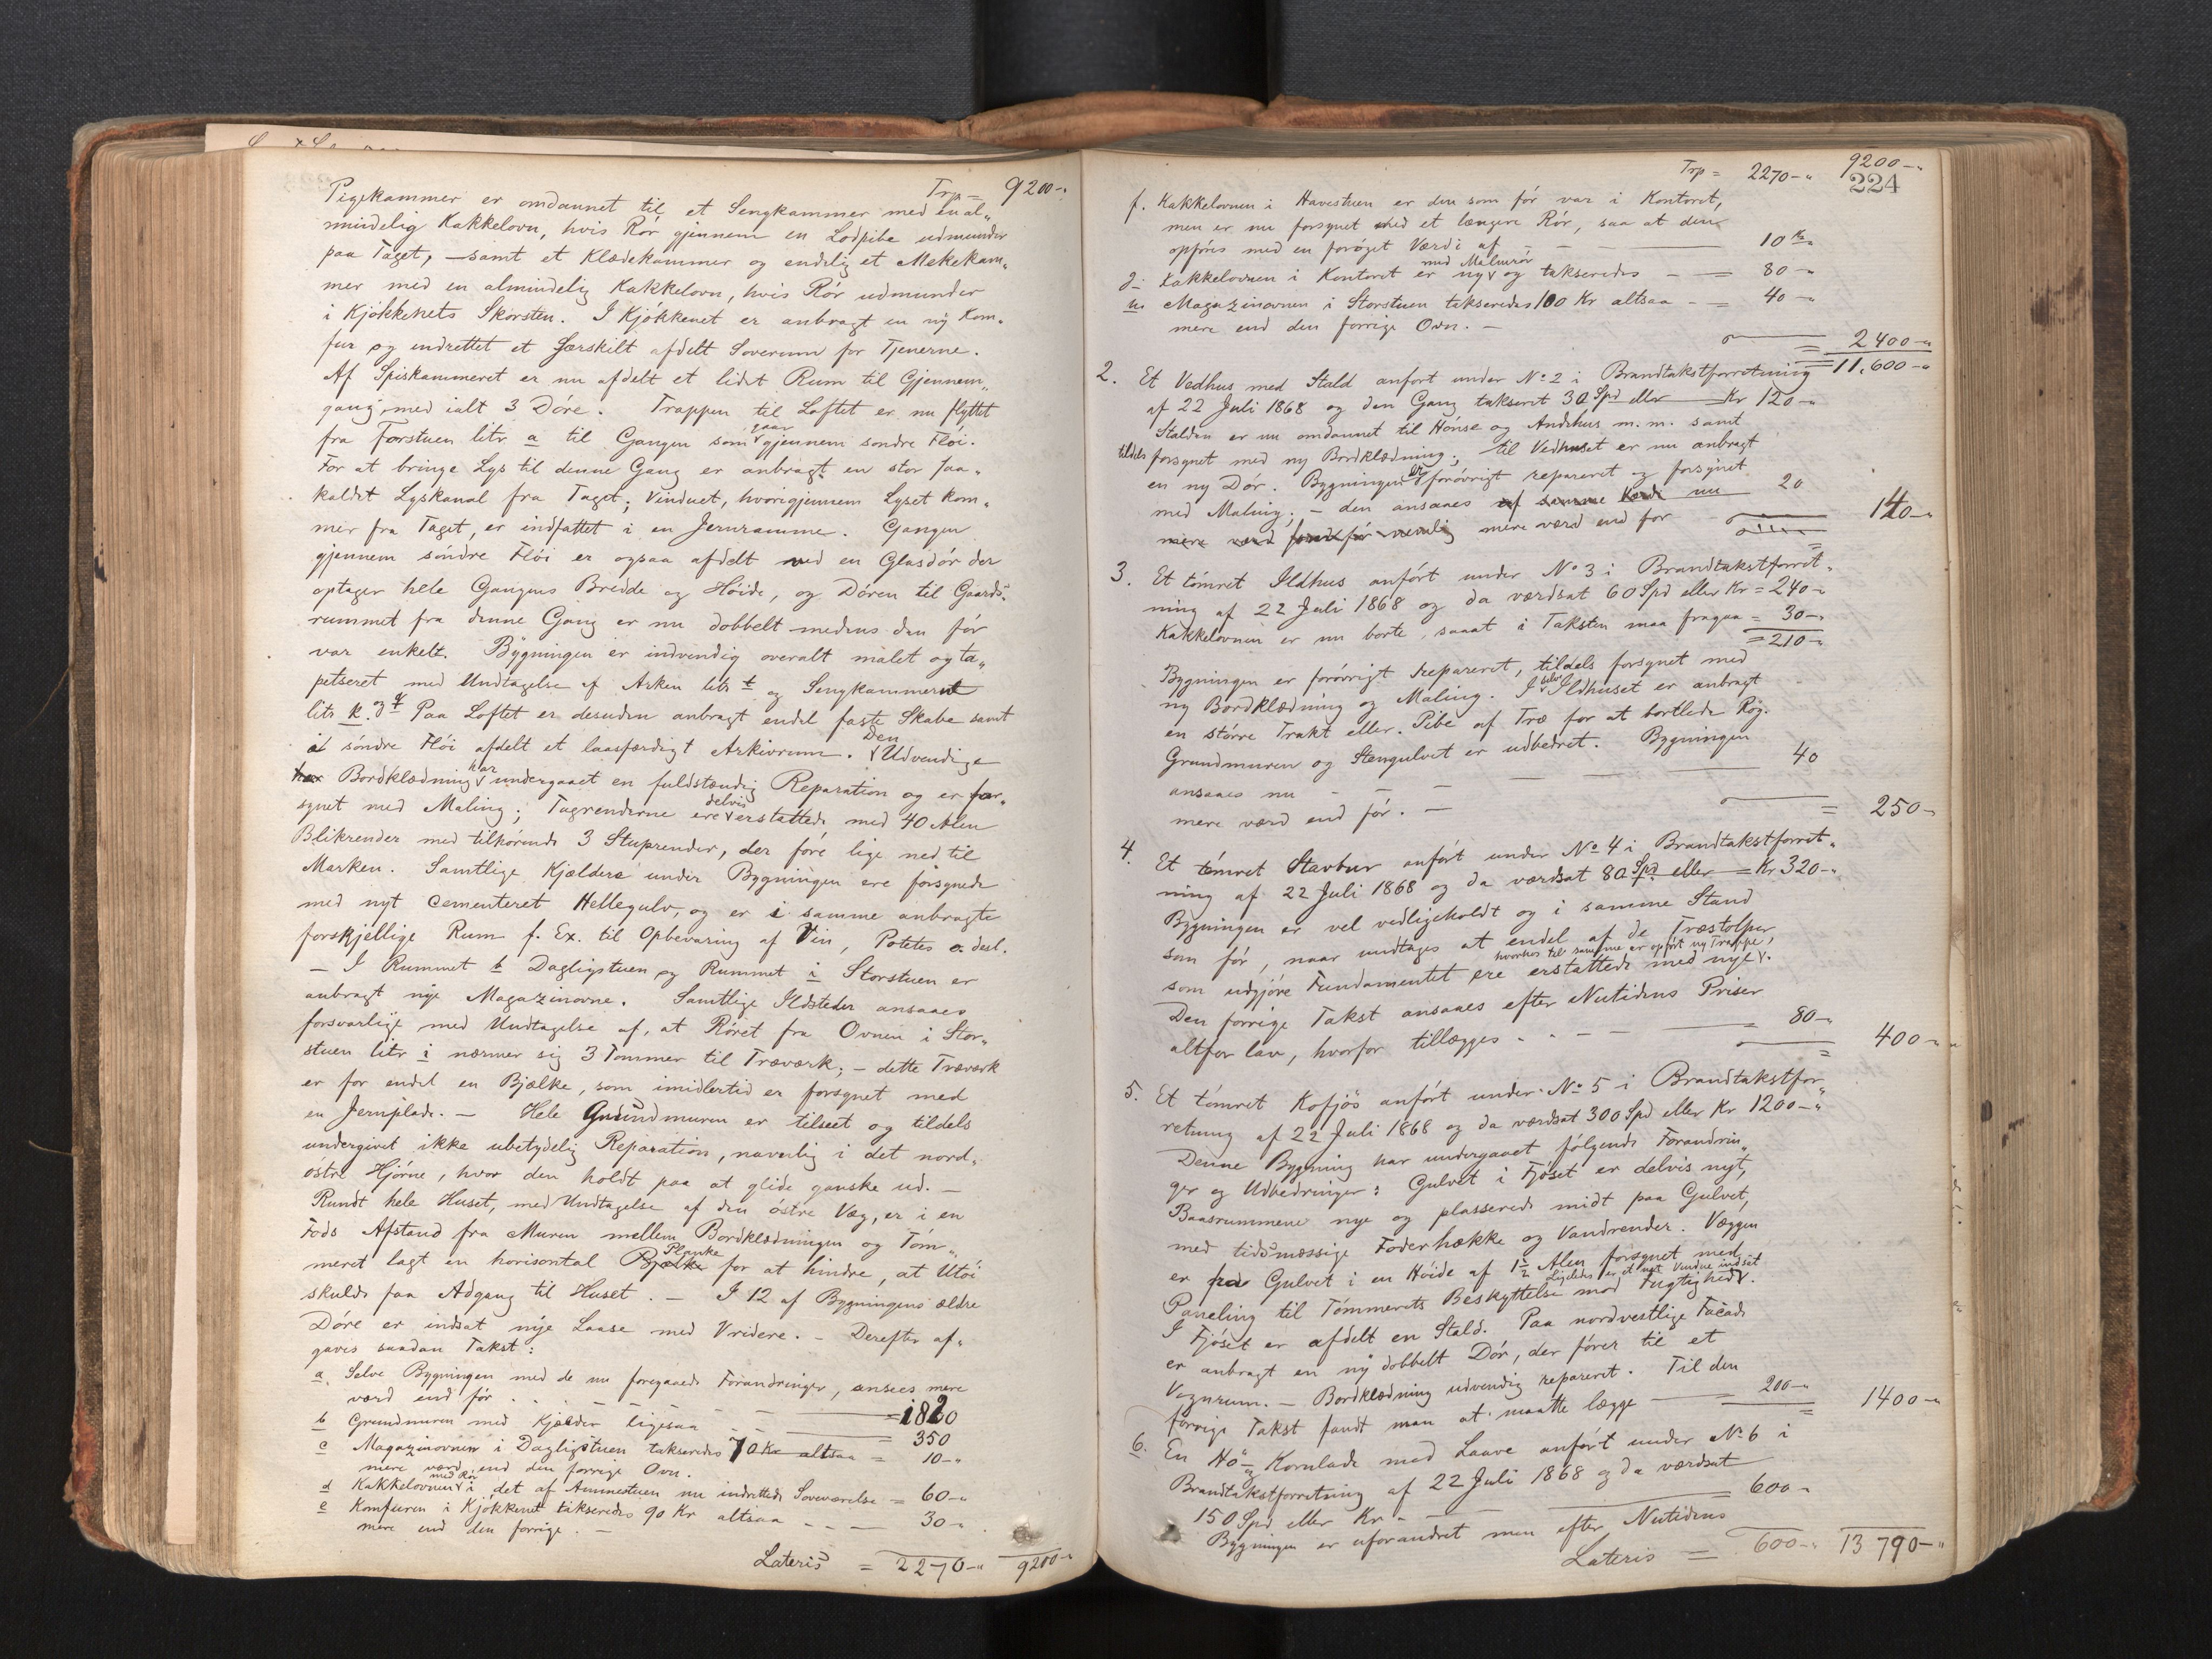 Trp = 9200-"
Pigekammer er omdannet til et Sengkammer med en al„
mindelig Kakkelovn, hvis Rör gjennem en Lodpibe udmunder
paa Taget, – samt et Klædekammer og endelig et Mekekam„
mer med en almindelig Kakkelovn, hvis Rör udmunder
i Kjökkenets Skorsten. I Kjökkenet er anbragt en ny Kom„
fur og indrettet et særskilt afdelt Soverum for Tjenerne.
Af Spiskammeret er nu afdelt et lidet Rum til Gjennem„
gang, med ialt 3 Döre. Trappen til Loftet er nu flyttet
fra Forstuen litr a til Gangen som gaar gjennem söndre Flöi.
For at bringe Lys til denne Gang er anbragt en stor saa„
kaldet Lyskanal fra Taget; Vinduet, hvorigjennem Lyset kom„
mer fra Taget, er indfattet i en Jernramme. Gangen
gjennem söndre Flöi er ogsaa afdelt ved en Glasdör der
optager hele Gangens Bredde og Höide, og Dören til Gaards„
rummet fra denne Gang er nu dobbelt medens den för
var enkelt. Bygningen er indvendig overalt malet og ta„
petseret med Undtagelse af Arken litr t og Sengkammerne
litr k. og q Paa Loftet er desuden anbragt endel faste Skabe samt
i söndre Flöi afdelt et laasfærdigt Arkivrum. Den Udvendige
har Bordklædning har undergaaet en fuldstændig Reparation og er for„
synet med Maling; Tagrenderne ere delvis erstattede med 40 Alen
Blikrender med tilhörende 3 Stuprender, der före lige ned til
Marken. Samtlige Kjældere under Bygningen ere forsynede
med nyt cementeret Hellegulv, og er i samme anbragte
forskjellige Rum f. Ex. til Opbevaring af Vin, Potetes o. desl.
– I Rummet b Dagligstuen og Rummet i Storstuen er
anbragt nye Magazinovne. Samtlige Ildsteder ansaaes
forsvarlige med Undtagelse af, at Röret fra Ovnen i Stor„
stuen litr i nærmer sig 3 Tommer til Træværk; – dette Træværk
er for endel en Bjælke, som imidlertid er forsynet med
en Jernplade. – Hele Grundmuren er tilseet og tildels
undergivet ikke ubetydelig Reparation, navnlig i det nord„
östre Hjörne, hvor den holdt paa at glide ganske ud. –
Rundt hele Huset, med Undtagelse af den östre Væg, er i en
Fods Afstand fra Muren mellem Bordklædningen og Töm„
meret lagt en horisontal Bjælke Planke for at hindre, at Utöi
skulde faa Adgang til Huset. – I 12 af Bygningens ældre
Döre er indsat nye Laase med Vridere. – Derefter af„
gaves saadan Takst:
a. Selve Bygningen med de nu foregaaede Forandringer, ansees mere
værd end för . . . – – – = 1820
b Grundmuren med Kjælder ligesaa – – = 350
c Magazinovnen i Dagligstuen takseredes 70 Kr altsaa = 10-"
mere værd end den forrige Ovn.
d Kakkelovnen med Rör i det af Ammestuen nu indrettede Soveværelse = 60-"
e Komfuren i Kjökkenet takseredes 90 Kr altsaa – – – 30-"
mere end den forrige. –
Lateris = 2270-" 9200-"
Trp = 2270-" 9200-"
224
f. Kakkelovnen i Havestuen er den som för var i Kontoret,
men er nu forsynet med et længere Rör, saa at den
opföres med en foröget Værdi af – – 10 Kr
g. Kakkelovnen i Kontoret er ny med Malmrör og takseredes – = 80-"
h. Magazinovnen i Storstuen takseredes 100 Kr altsaa – = 40-"
mere end den forrige Ovn. –
= 2400-"
= 11.600-"
2. Et Vedhus med Stald anfört under No 2 i Brandtakstforretning
af 22 Juli 1868 og den Gang takseret 30 Spd eller Kr 120-"
Stalden er nu omdannet til Hönse og Andehus m.m. samt
tildels forsynet med ny Bordklædning; til Vedhuset er nu anbragt
en ny Dör. Bygningen er forövrigt repareret og forsynet
med Maling; – den ansaaes af samme Værdi nu 20
mere værd end för nemlig mere værd end för
140-"
3. Et tömret Ildhus anfört under No 3 i Brandtakstforret„
ning af 22 Juli 1868 og da værdsat 60 Spd eller Kr = 240-"
Kakkelovnen er nu borte, saaat i Taksten maa fragaa = 30-"
= 210-"
Bygningen er forövrigt repareret, tildels forsynet med
ny Bordklædning og Maling. I selve Ildhuset er anbragt
en större Trakt eller Pibe af Træ for at bortlede Rög.
Grundmuren og Stengulvet er udbedret. Bygningen
ansaaes nu – – – 40
mere værd end för. –
= 250-
4. Et tömret Stavbur anfört under No 4 i Brandtakstforret„
ning af 22 Juli 1868 og da værdsat 80 Spd eller = Kr. 320-"
Bygningen er vel vedligeholdt og i samme Stand
som för, naar undtages at endel af de Træstolper
som udgjöre Fundamentet ere erstattede med nye, hvorhos til samme er opfört ny Trappe.
Den forrige Takst ansaaes efter Nutidens Priser
altfor lav, hvorfor tillægges . . – – = 80-"
= 400-"
5. Et tömret Kofjös anfört under No 5 i Brandtakstfor„
retning af 22 Juli 1868 og da værdsat 300 Spd eller Kr. 1200-"
Denne Bygning har undergaaet fölgende Forandrin„
ger og Udbedringer: Gulvet i Fjöset er delvis nyt,
Baasrummene nye og plasserede midt paa Gulvet,
med tidsmæssige Foderhække og Vandrender. Væggen
er fra Gulvet i en Höide af 1½ Alen forsynet med
Paneling til Tömmerets Beskyttelse mod Fugtighed. Ligeledes er et nyt Vindue indsat
I Fjöset er afdelt en Stald. Paa nordvestlige Facade
er anbragt en ny dobbelt Dör, der förer til et
Vognrum. – Bordklædning udvendig repareret. Til den
forrige Takst fandt man at maatte lægge = 200-"
= 1400-"
6. En Hö- og Kornlade med Laave anfört under No 6 i
Brandtakstforretning af 22 Juli 1868 og da værdsat
150 Spd eller Kr – – = 600-
Bygningen er uforandret men efter Nutidens
Lateris = 600-" 13 790-"